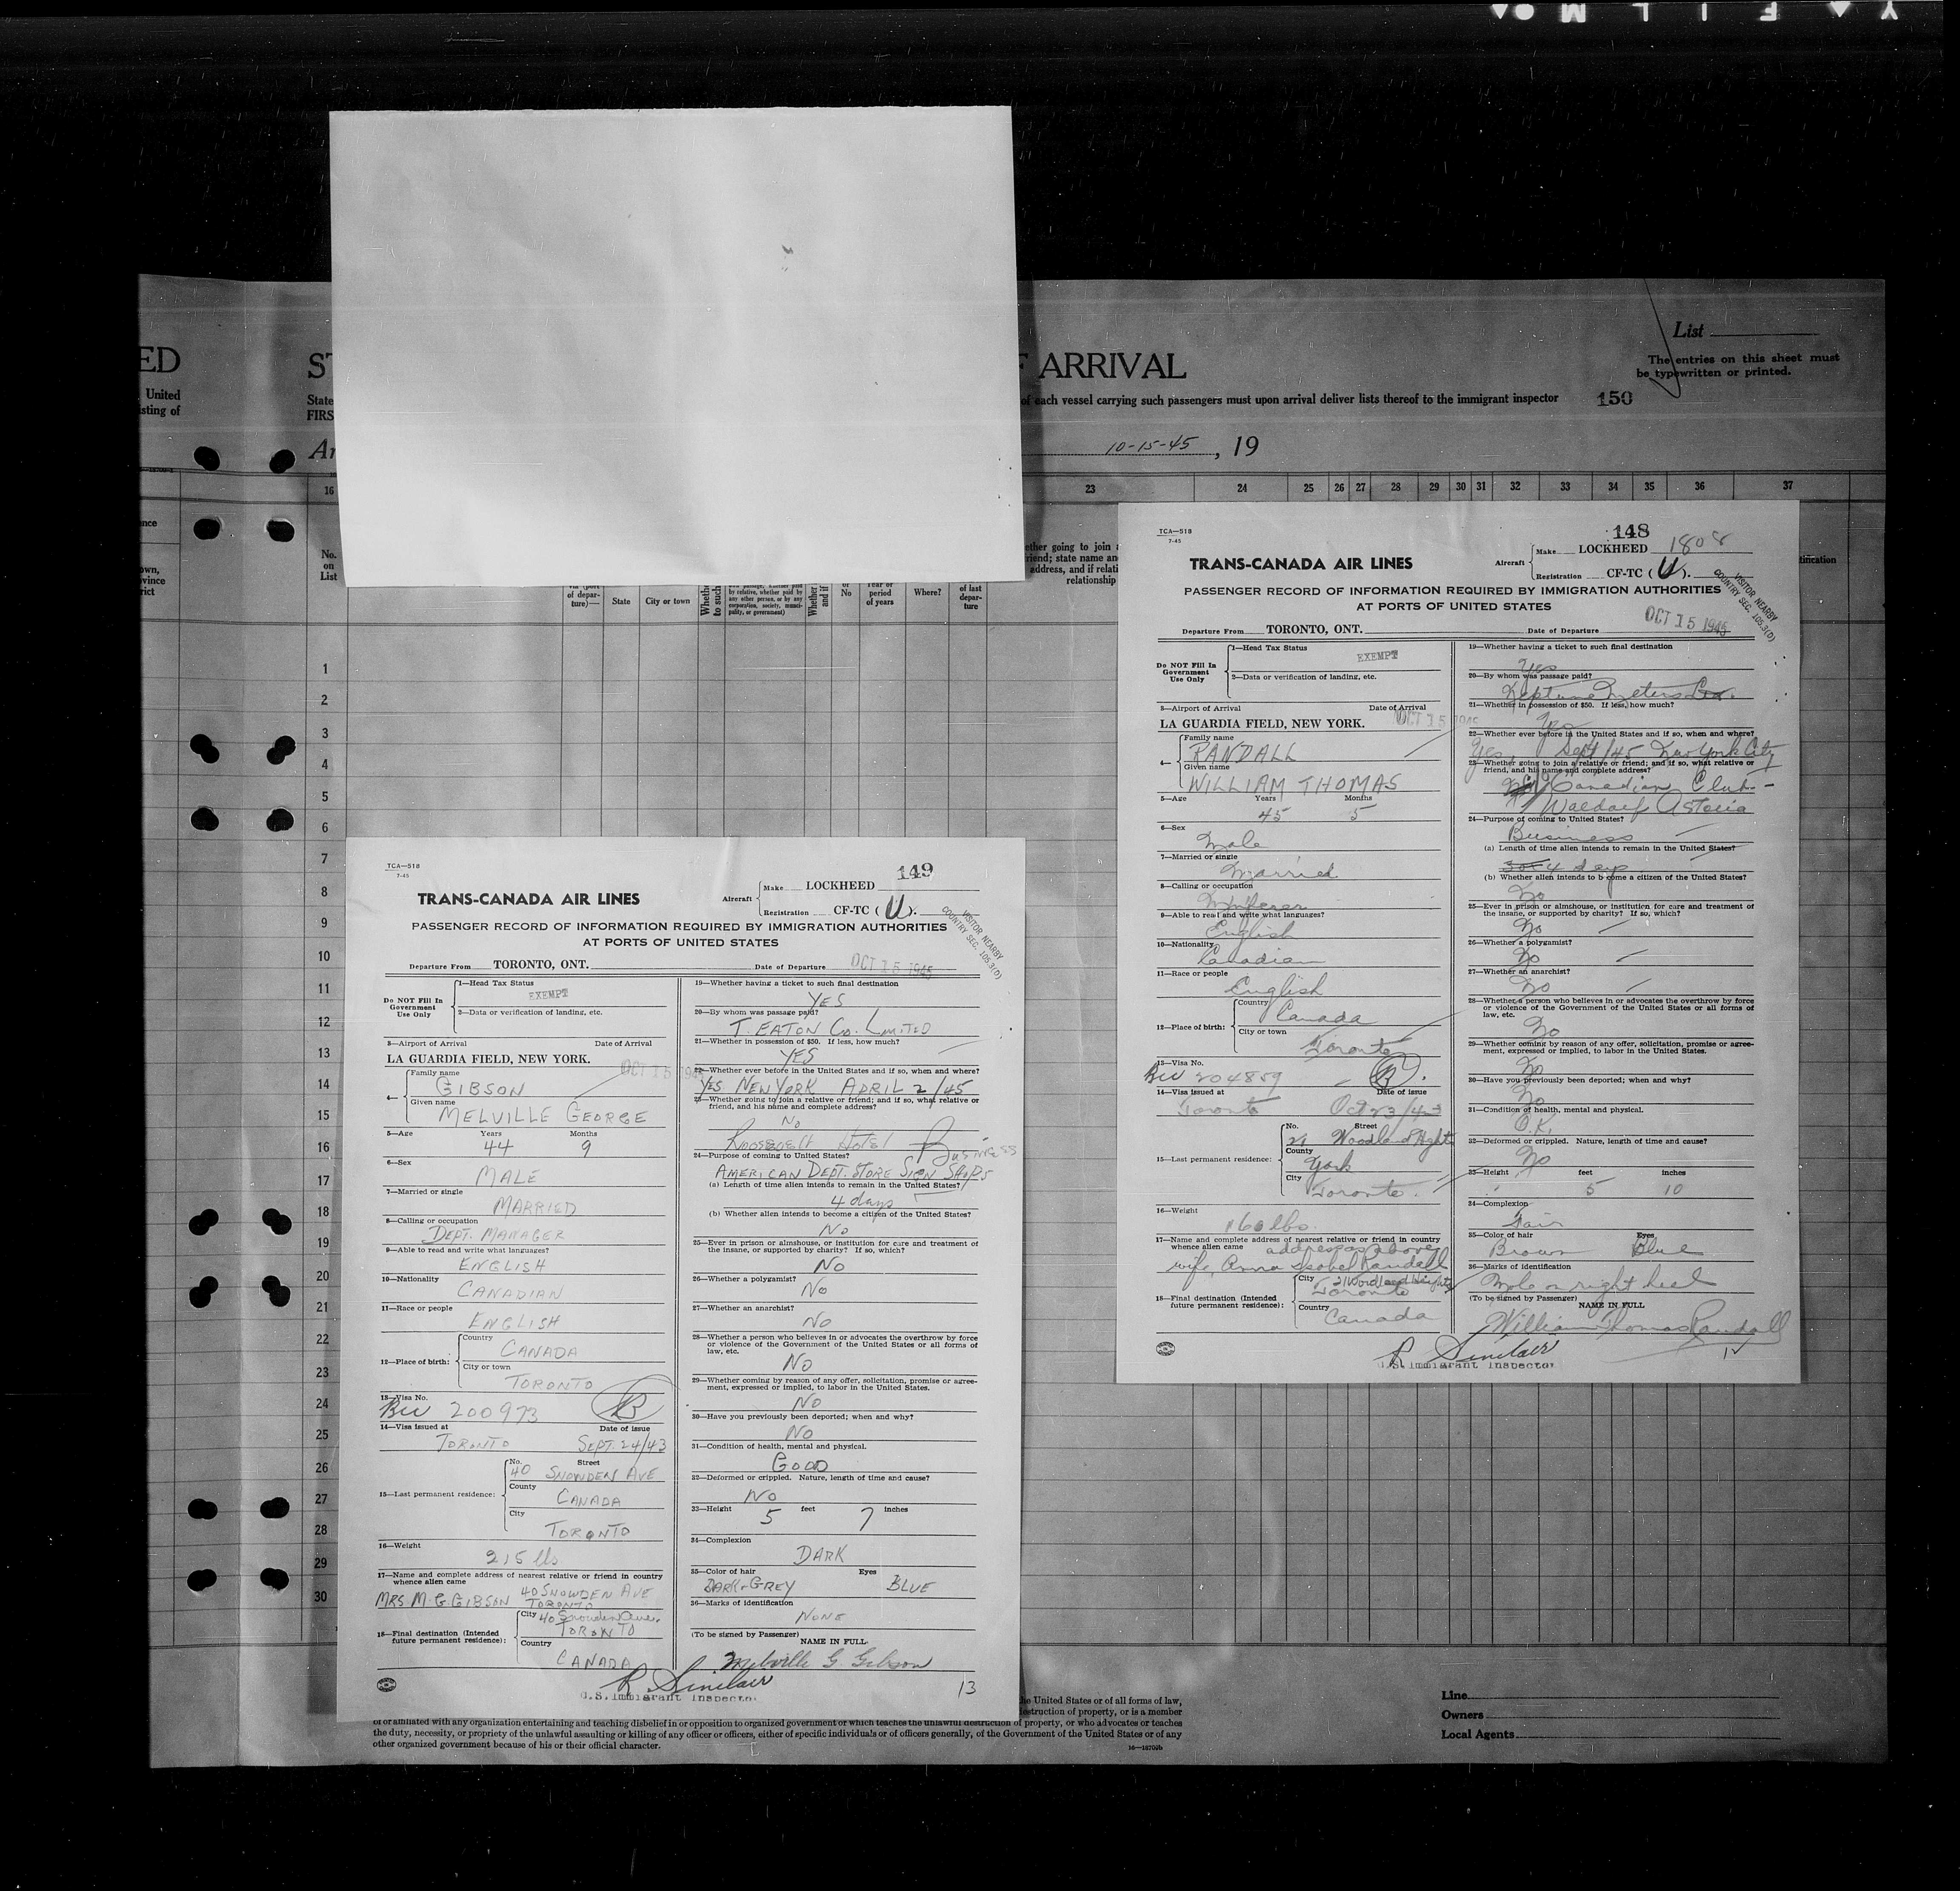 Y A F I L M
ED
United
sting of
ARRIVAL
State
FIRS
of each vessel carrying such passengers must upon arrival deliver lists thereof to the immigrant inspector
150
List
The entries on this sheet must
be typewritten or printed.
10-15-45, 19
16
23 24 25 26 27 28 29 30 31 32 33 34 35 36 37
No.
on
List
State
City or town
Where?
1
2
3
4
5
6
7
8
9
10
11
12
13
14
15
16
17
18
19
20
21
22
23
24
25
26
27
28
29
30
TCA—518
7-45
149
TRANS-CANADA AIR LINES
Aircraft
Make LOCKHEED
Registration CF-TC (U).
VISITOR NEARBY
COUNTRY SEC. 105.3(D)
PASSENGER RECORD OF INFORMATION REQUIRED BY IMMIGRATION AUTHORITIES
AT PORTS OF UNITED STATES
Departure From TORONTO, ONT.
Date of Departure OCT 15 1945
Do NOT Fill In
Government
Use Only
1—Head Tax Status
EXEMPT
2—Data or verification of landing, etc.
3—Airport of Arrival Date of Arrival
LA GUARDIA FIELD, NEW YORK. OCT 15 1945
4— Family name
GIBSON
Given name
MELVILLE GEORGE
5—Age Years Months
44 9
6—Sex
MALE
7—Married or single
MARRIED
8—Calling or occupation
DEPT. MANAGER
9—Able to read and write what languages?
ENGLISH
10—Nationality
CANADIAN
11—Race or people
ENGLISH
12—Place of birth:
Country
CANADA
City or town
TORONTO
13—Visa No.
200973
14—Visa issued at Date of issue
TORONTO SEPT. 24/43
15—Last permanent residence:
No. Street
40 SNOWDEN AVE
County
CANADA
City
TORONTO
16—Weight
215 lbs
17—Name and complete address of nearest relative or friend in country
whence alien came
40 SNOWDEN AVE
MRS M. G. GIBSON TORONTO
18—Final destination (Intended
future permanent residence):
City 40 Snowden Ave.
TORONTO
Country
CANADA
R. Sinclair
U.S. Immigrant Inspector
19—Whether having a ticket to such final destination
YES
20—By whom was passage paid?
T. EATON CO. LIMITED
21—Whether in possession of $50. If less, how much?
YES
22—Whether ever before in the United States and if so, when and where?
YES NEW YORK APRIL 2/45
23—Whether going to join a relative or friend; and if so, what relative or
friend, and his name and complete address?
NO
ROOSEVELT HOTEL BUSINESS
24—Purpose of coming to United States?
AMERICAN DEPT. STORE SIGN SHOPS
(a) Length of time alien intends to remain in the United States?
4 days
(b) Whether alien intends to become a citizen of the United States?
NO
25—Ever in prison or almshouse, or institution for care and treatment of
the insane, or supported by charity? If so, which?
NO
26—Whether a polygamist?
NO
27—Whether an anarchist?
NO
28—Whether a person who believes in or advocates the overthrow by force
or violence of the Government of the United States or all forms of
law, etc.
NO
29—Whether coming by reason of any offer, solicitation, promise or agree-
ment, expressed or implied, to labor in the United States.
NO
30—Have you previously been deported; when and why?
NO
31—Condition of health, mental and physical.
GOOD
32—Deformed or crippled. Nature, length of time and cause?
NO
33—Height 5 feet 7 inches
34—Complexion
DARK
35—Color of hair Eyes
DARK-GREY BLUE
36—Marks of identification
NONE
(To be signed by Passenger)
NAME IN FULL.
Melville G. Gibson
13
TCA—518
7-45
148
TRANS-CANADA AIR LINES
Aircraft
Make LOCKHEED 1808
Registration CF-TC (U).
VISITOR NEARBY
COUNTRY SEC. 105.3(D)
PASSENGER RECORD OF INFORMATION REQUIRED BY IMMIGRATION AUTHORITIES
AT PORTS OF UNITED STATES
Departure From TORONTO, ONT.
Date of Departure OCT 15 1945
Do NOT Fill In
Government
Use Only
1—Head Tax Status
EXEMPT
2—Data or verification of landing, etc.
3—Airport of Arrival Date of Arrival
LA GUARDIA FIELD, NEW YORK. OCT 15 1945
4— Family name
RANDALL
Given name
WILLIAM THOMAS
5—Age Years Months
45 5
6—Sex
Male
7—Married or single
Married
8—Calling or occupation
9—Able to read and write what languages?
English
10—Nationality
Canadian
11—Race or people
English
12—Place of birth:
Country
Canada
City or town
Toronto
13—Visa No.
204859
14—Visa issued at Date of issue
Toronto Oct 23/43
15—Last permanent residence:
No. Street
21 Woodland Hghts
County
York
City
Toronto.
16—Weight
160 lbs.
17—Name and complete address of nearest relative or friend in country
whence alien came address as above
wife, Anna Isobel Randall
18—Final destination (Intended
future permanent residence):
City 21 Woodland Heights
Toronto
Country
Canada
R. Sinclair
U.S. Immigrant Inspector
19—Whether having a ticket to such final destination
Yes
20—By whom was passage paid?
Neptune Meters
21—Whether in possession of $50. If less, how much?
Yes
22—Whether ever before in the United States and if so, when and where?
Yes, Sept/45 New York City
23—Whether going to join a relative or friend; and if so, what relative or
friend, and his name and complete address?
Canadian Club-
Waldorf Astoria
24—Purpose of coming to United States?
Business
(a) Length of time alien intends to remain in the United States?
4 days
(b) Whether alien intends to become a citizen of the United States?
No
25—Ever in prison or almshouse, or institution for care and treatment of
the insane, or supported by charity? If so, which?
No
26—Whether a polygamist?
No
27—Whether an anarchist?
No
28—Whether a person who believes in or advocates the overthrow by force
or violence of the Government of the United States or all forms of
law, etc.
No
29—Whether coming by reason of any offer, solicitation, promise or agree-
ment, expressed or implied, to labor in the United States.
No
30—Have you previously been deported; when and why?
No
31—Condition of health, mental and physical.
O.K.
32—Deformed or crippled. Nature, length of time and cause?
No
33—Height feet inches
5 10
34—Complexion
Fair
35—Color of hair Eyes
Brown Blue
36—Marks of identification
Mole on right heel
(To be signed by Passenger)
NAME IN FULL
William Thomas Randall
he United States or of all forms of law,
destruction of property, or is a member
of or affiliated with any organization entertaining and teaching disbelief in or opposition to organized government or which teaches the unlawful destruction of property, or who advocates or teaches
the duty, necessity, or propriety of the unlawful assaulting or killing of any officer or officers, either of specific individuals or of officers generally, of the Government of the United States or of any
other organized government because of his or their official character.
Line
Owners
Local Agents